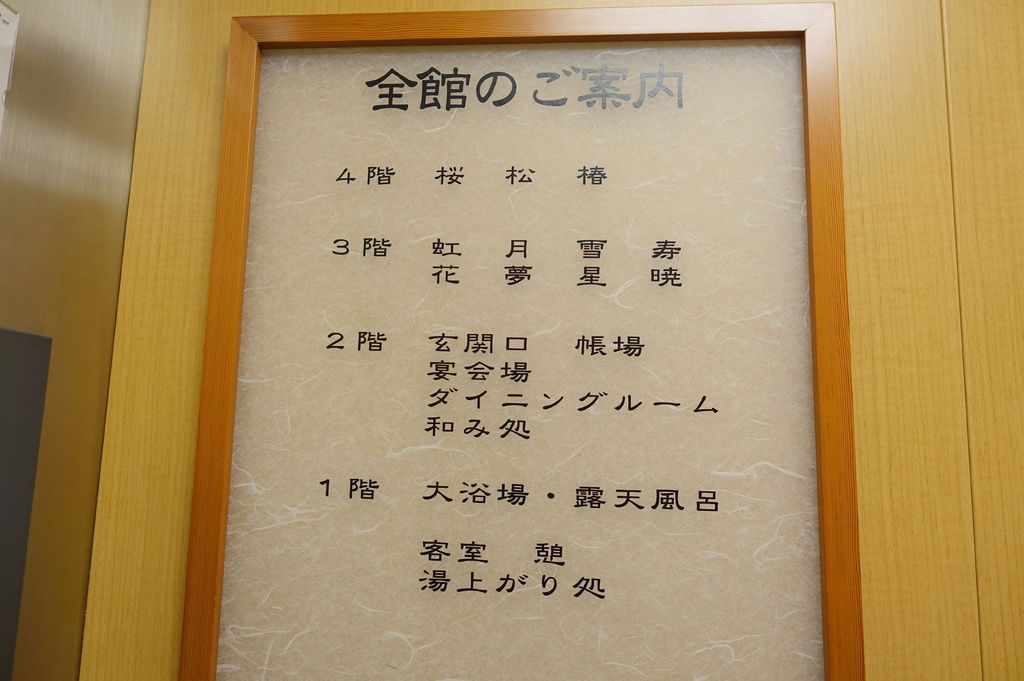 全館のご案内
４階 桜 松 椿
３階 虹 月 雪 寿
花 夢 星 暁
２階 玄関口 帳場
宴会場
ダイニングルーム
和み処
１階 大浴場・露天風呂
客室 憩
湯上がり処